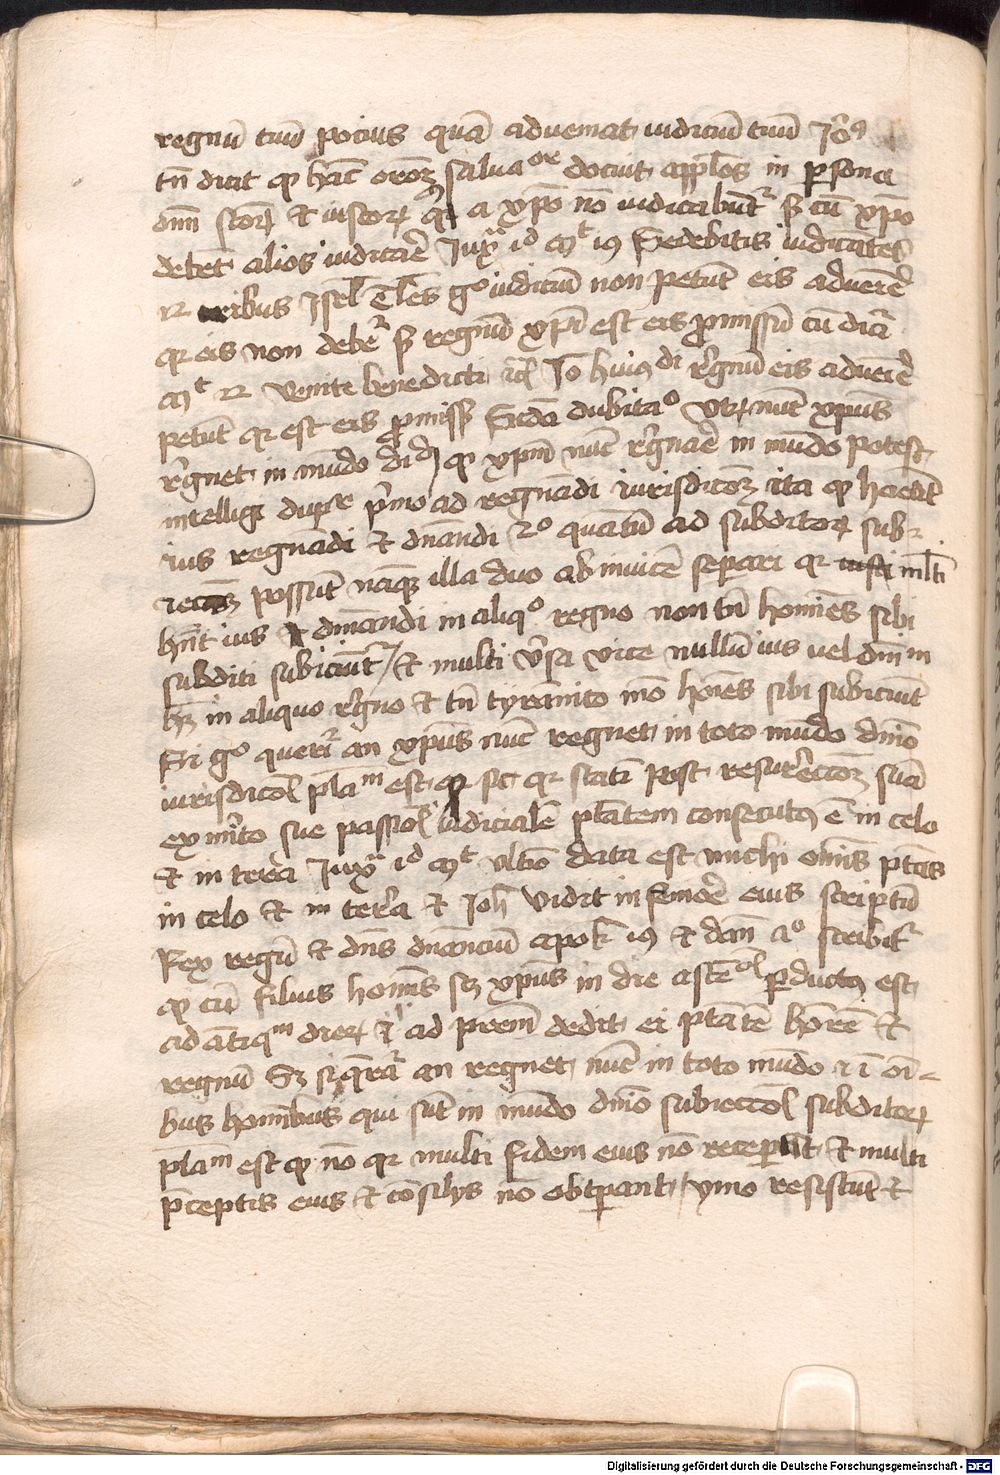 regnū tuū pocius quā adveniat iudiciū tuū Jo9
tn̄ dicit qp hāc oroēz saluaor docuit appl̄os in psona
dnī sctorꝝ et iustorꝝ qi a xpo nō iudicabūtr sz cū xpo
debēt alios iudicare Juxa id mt i9 Sedebitis iudicātes
12 tribus Isrl Tales go iudiciū non petūt eis aduenire
qr eis non debetr sz regnū xpi est eis promissū cū dicit
mt 12 Venite benedicti rc Jo hui9di regnū eis aduenire
petūt qr est eis promiss Scda dubitao Utrū nūc xpus
regnet in mūdo dd qp xpm nūc regnare in mūdo potest
intelligi dupr primo ad regnādi iurisdictoēz ita qp habeat
ius regnādi et dnādi 2o quātū ad subditorꝝ sub-
iectoēz possūt nāqz illa duo abinuicē separi qr mlti
hn̄t ius dnādi in aliqo regno non tn̄ homīes sibi
subditi subiciūtr et multi versa vice nullū ius uel dnīm
hn̄t in aliquo regno et tn̄ tyrānico mō hoīes sibi subiciūt
Si go querir an xpus nūc regnet in toto mūdo dnīo
iurisdictol plam est qp sic qr statī post resurectoēz suā
ex merito sue passiol iudicialē ptātem consecut9 ē in celo
et in terra Juxa id mt ultīo data est michi omīs ptās
in celo et in terra et Joh vidit in femore eius scriptū
Rex regū et dn̄s dnānciū apok i9 et dan ao scribitr
qp cū filius homīs sz xpus in die ascēol pductus est
ad ātiqm dierꝝ i ad pre͞m dedit ei ptātē honorē et
regnū Sz si querir an regnet nūc in toto mūdo i ī oī-
bus homībus qui sūt in mūdo dnīo subiectol subditorꝝ
plam est qp nō qr multi fidem eius nō receperūt et multi
preceptis eius et cōsilys nō obtperant ymo resistūt et
Digitalisierung gefördert durch die Deutsche Forschungsgemeinschaft - DFG